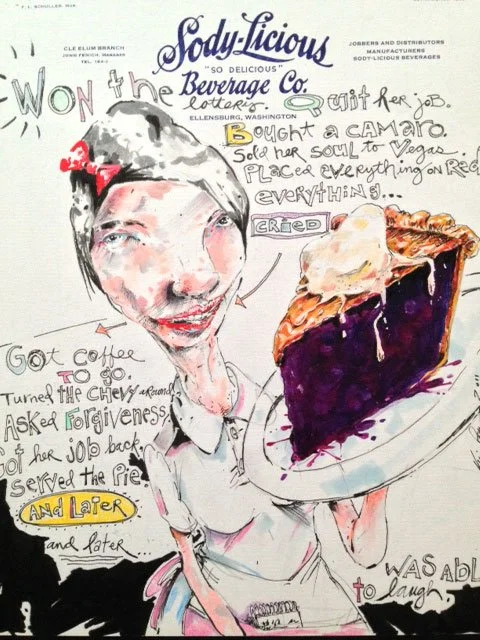 F. L. SCHULLER, MGR.
Sody-Licious
"SO DELICIOUS"
Beverage Co.
ELLENSBURG, WASHINGTON
CLE ELUM BRANCH
TEL.
JOBBERS AND DISTRIBUTORS
MANUFACTURERS
SODY-LICIOUS BEVERAGES
WON the
lottery. Quit her job.
Bought a CAMARO.
Sold her SOUL to Vegas.
PLACED everything on Red
everything...
CRIED
Got coffee
TO go.
Turned the CHEVY around
ASKED FORgiveness
Got her JOB back.
served the Pie
AND LATER
and later...
WAS ABL
to laugh.